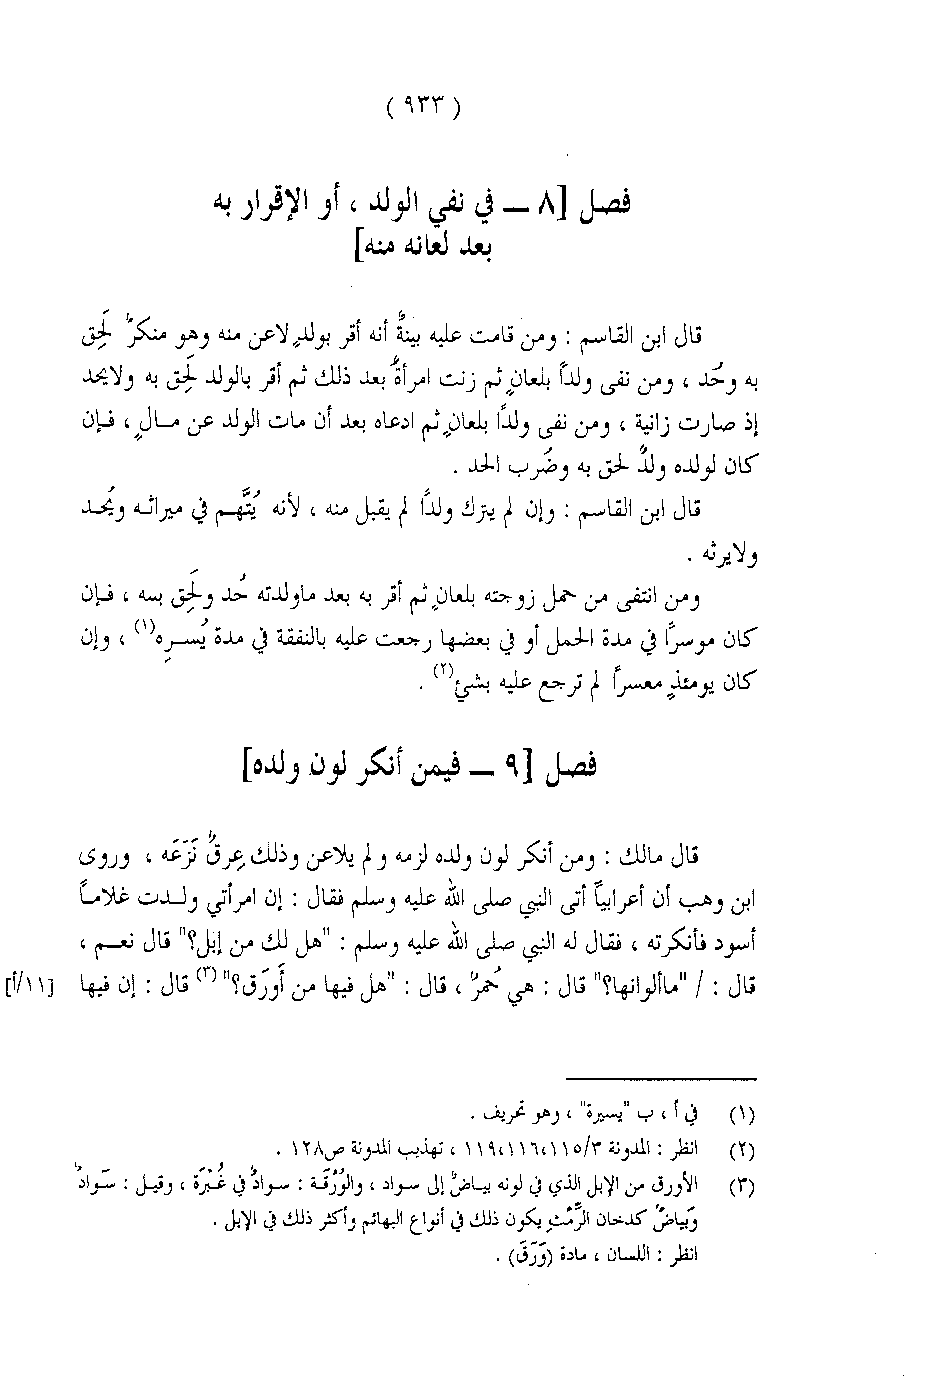 ( ٩٣٣ )
فصل [٨ ــ في نفي الولد ، أو الإقرار به
بعد لعانه منه]
قال ابن القاسم : ومن قامت عليه بينةٌ أنه أقر بولدٍ لاعن منه وهو منكرٌ لَحِق
به وحُد ، ومن نفى ولداً بلعانٍ ثم زنت امرأةٌ بعد ذلك ثم أقر بالولد لَحِق به ولايحد
إذ صارت زانية ، ومن نفى ولداً بلعانٍ ثم ادعاه بعد أن مات الولد عن مـالٍ ، فـإن
كان لولده ولدٌ لحق به وضُرب الحد .
قال ابن القاسم : وإن لم يترك ولداً لم يقبل منه ، لأنه يُتَّهم في ميراثـه ويُحـد
ولايرثه .
ومن انتفى من حمل زوجته بلعانٍ ثم أقر به بعد ماولدته حُد ولَحِق بـه ، فـإن
كان موسراً في مدة الحمل أو في بعضها رجعت عليه بالنفقة في مدة يُسـرِه(١) ، وإن
كان يومئذٍ معسراً لم ترجع عليه بشئ(٢) .
فصل [٩ ــ فيمن أنكر لون ولده]
قال مالك : ومن أنكر لون ولده لزمه ولم يلاعن وذلك عِرقٌ نَزَعَه ، وروى
ابن وهب أن أعرابياً أتى النبي صلى الله عليه وسلم فقال : إن امرأتي ولـدت غلامـاً
أسود فأنكرته ، فقال له النبي صلى الله عليه وسلم : "هل لك من إبل؟" قال نعـم ،
قال : / "ماألوانها؟" قال : هي حُمرٌ ، قال : "هل فيها من أَورَق؟"(٣) قال : إن فيها [١١/أ]
(١) في أ ، ب "يسيرة" ، وهو تحريف .
(٢) انظر : المدونة ١١٥/٣،١١٦،١١٩ ، تهذيب المدونة ص١٢٨ .
(٣) الأورق من الإبل الذي في لونه بيـاضٌ إلى سـواد ، والوُرْقَـة : سـوادٌ في غُبْـرَة ، وقيـل : سَوادٌ
وَبياضٌ كدخان الرِّمْثِ يكون ذلك في أنواع البهائم وأكثر ذلك في الإبل .
انظر : اللسان ، مادة (وَرَق) .